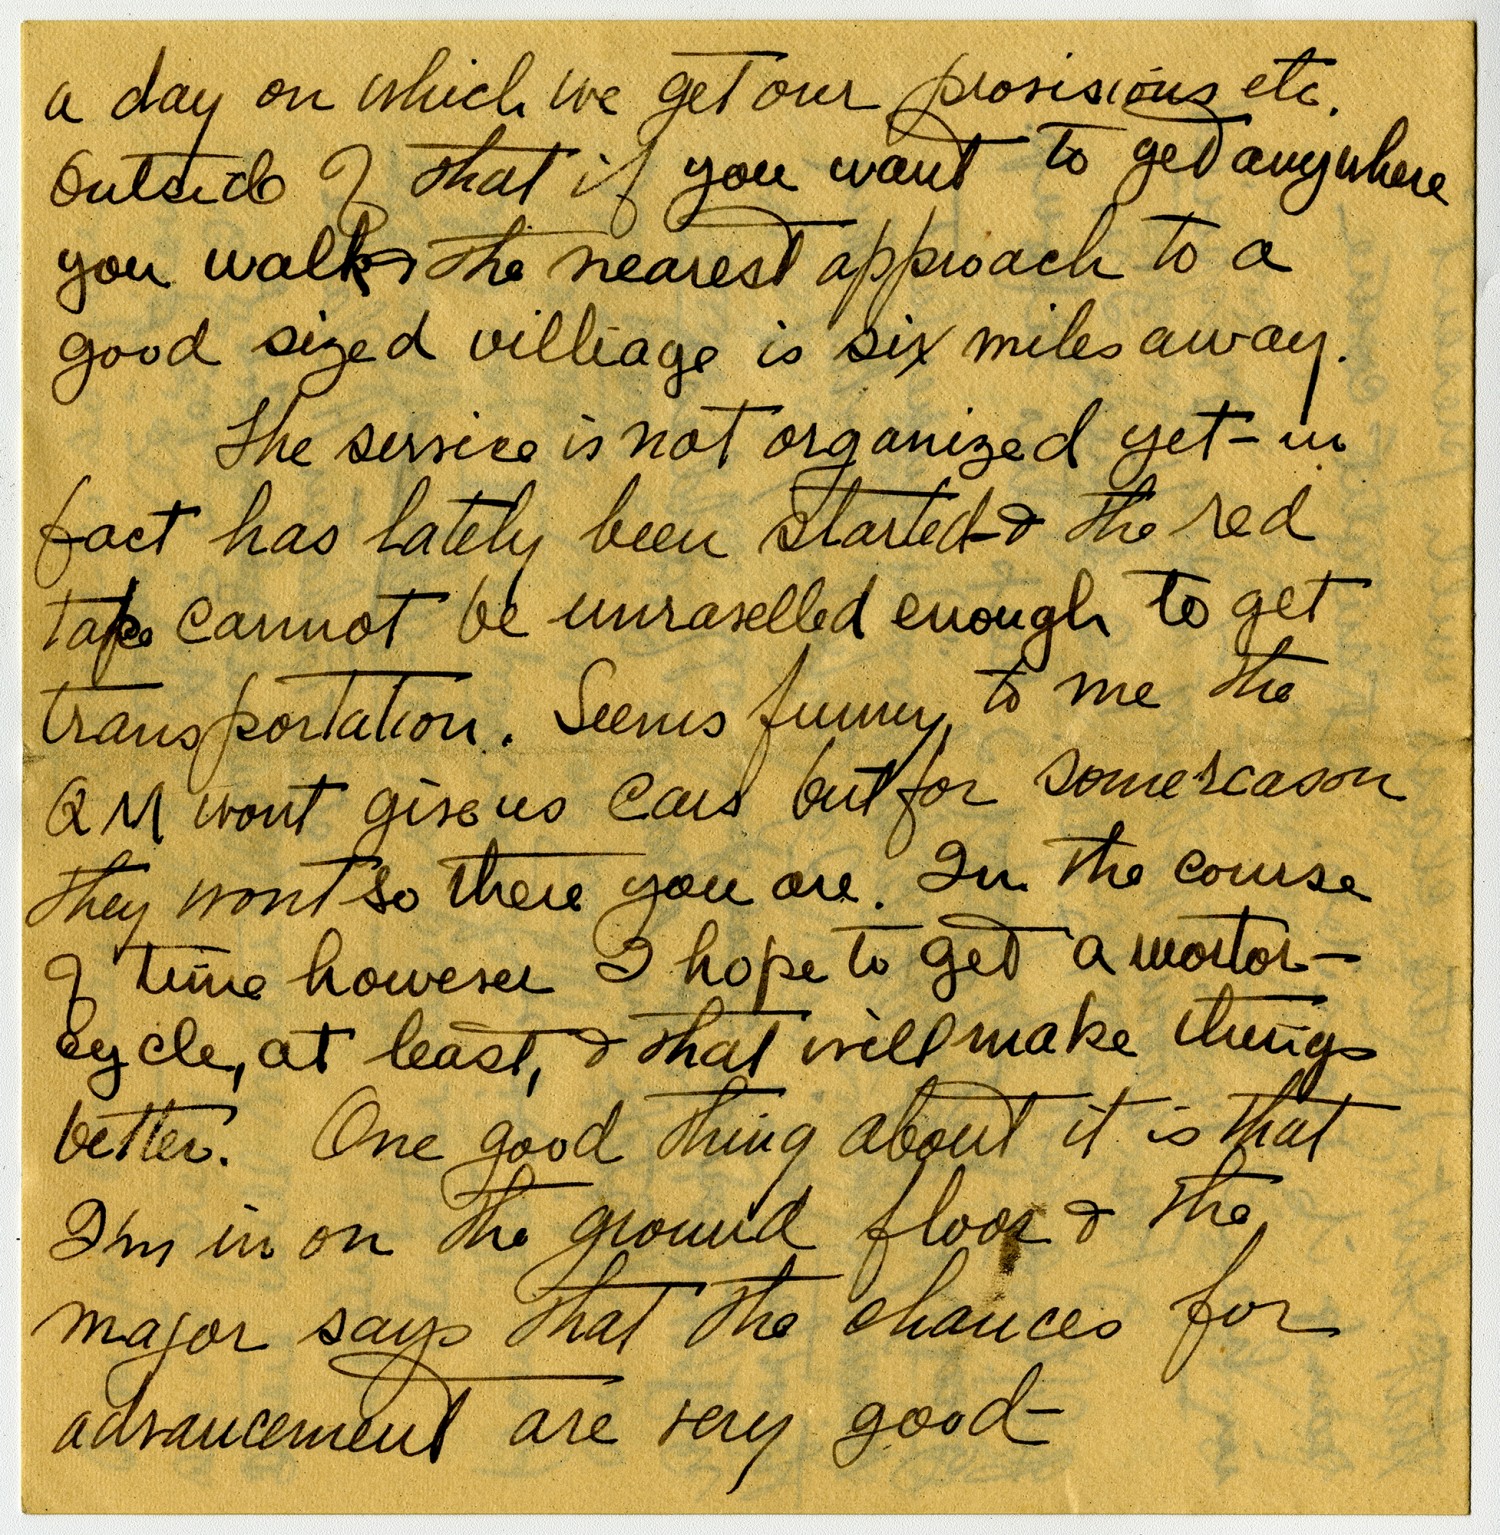 a day on which we get our provisions etc.
Outside of that if you want to get anywhere
you walk & the nearest approach to a
good sized villiage is six miles away.
The service is not organized yet - in
fact has lately been started & the red
tape cannot be unravelled enough to get
transportation. Seems funny to me the
QM wont give us cars but for some reason
they wont so there you are. In the course
of time however I hope to get a mortor-
cycle, at least, & that will make things
better. One good thing about it is that
I'm in on the ground floor & the
major says that the chances for
advancement are very good -